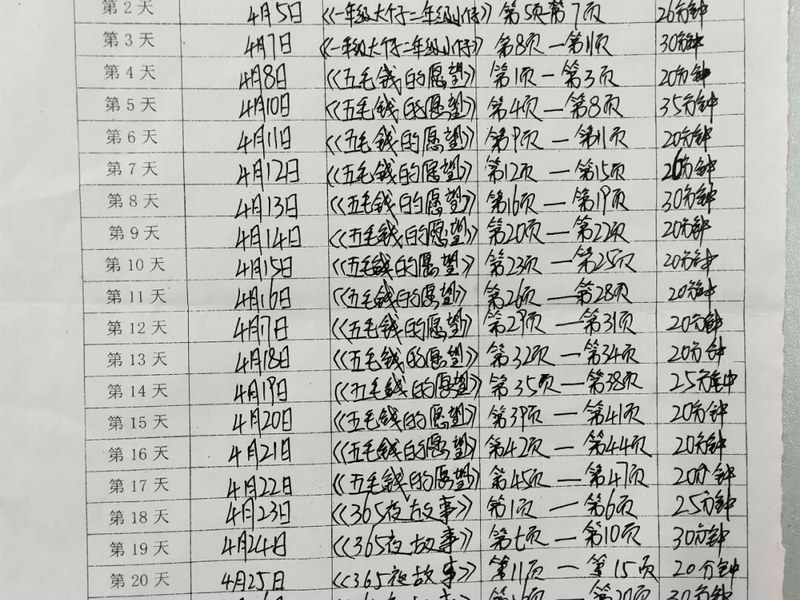 第 2 天 4月5日 《一年级大个子二年级小个子》 第5页 第7页 26分钟
第 3 天 4月7日 《一年级大个子二年级小个子》 第8页 — 第11页 30分钟
第 4 天 4月8日 《五毛钱的愿望》 第1页 — 第3页 20分钟
第 5 天 4月10日 《五毛钱的愿望》 第4页 — 第8页 35分钟
第 6 天 4月11日 《五毛钱的愿望》 第9页 — 第11页 20分钟
第 7 天 4月12日 《五毛钱的愿望》 第12页 — 第15页 分钟
第 8 天 4月13日 《五毛钱的愿望》 第16页 — 第19页 30分钟
第 9 天 4月14日 《五毛钱的愿望》 第20页 — 第22页 20分钟
第 10 天 4月15日 《五毛钱的愿望》 第23页 — 第25页 20分钟
第 11 天 4月16日 《五毛钱的愿望》 第26页 — 第28页 20分钟
第 12 天 4月17日 《五毛钱的愿望》 第29页 — 第31页 20分钟
第 13 天 4月18日 《五毛钱的愿望》 第32页 — 第34页 20分钟
第 14 天 4月19日 《五毛钱的愿望》 第35页 — 第38页 25分钟
第 15 天 4月20日 《五毛钱的愿望》 第39页 — 第41页 20分钟
第 16 天 4月21日 《五毛钱的愿望》 第42页 — 第44页 20分钟
第 17 天 4月22日 《五毛钱的愿望》 第45页 — 第47页 20分钟
第 18 天 4月23日 《365夜故事》 第1页 — 第6页 25分钟
第 19 天 4月24日 《365夜故事》 第七页 — 第10页 30分钟
第 20 天 4月25日 《365夜故事》 第11页 — 第15页 20分钟